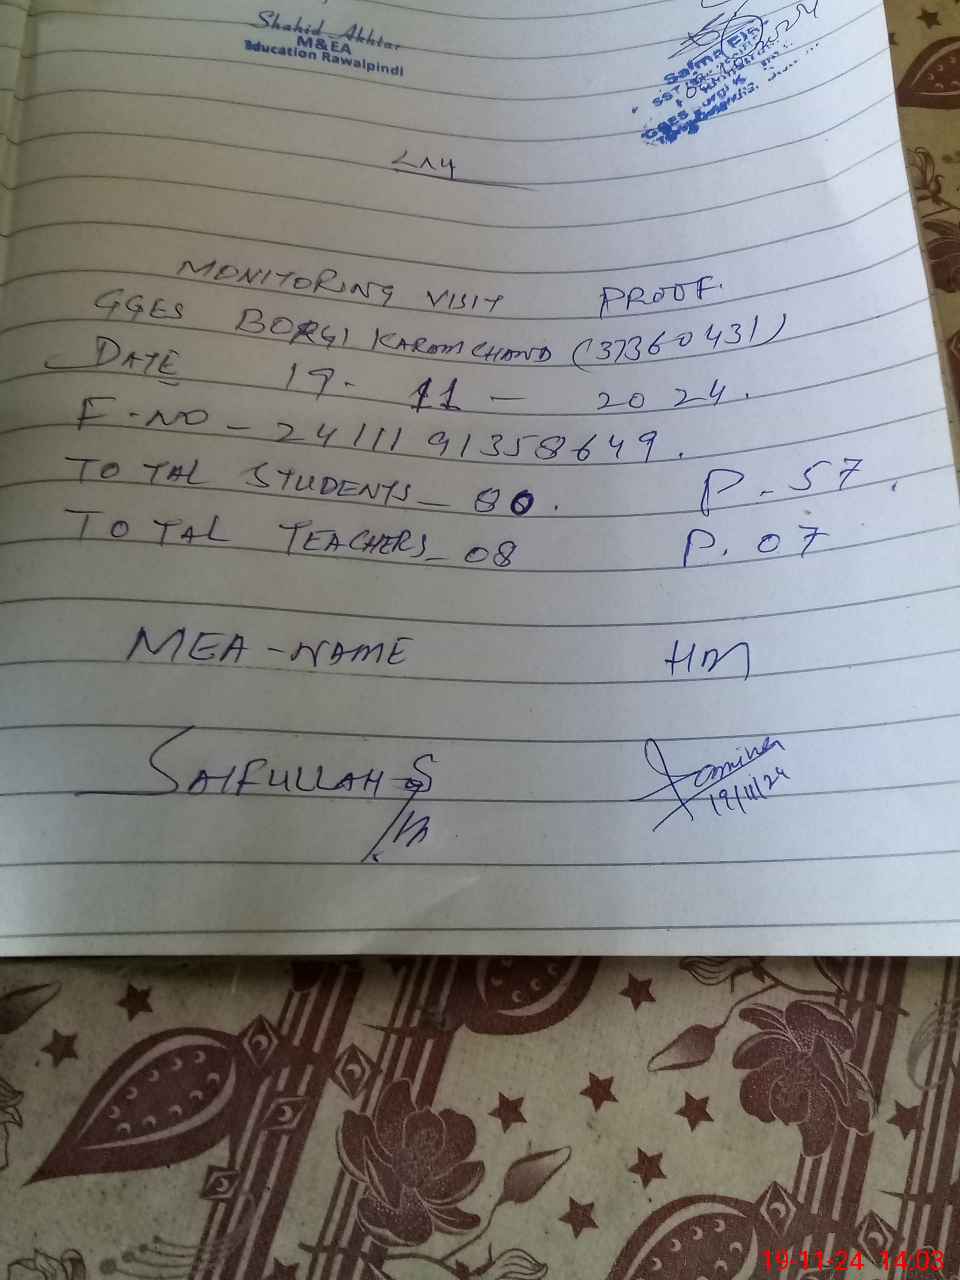 Shahid Akhtar
M&EA
Education Rawalpindi
Salma
SST
GGES
MONITORING VISIT PROOF.
GGES BORGI KARAMCHAND (37360431)
DATE 19-11-2024.
F-NO-2411191358649.
TOTAL STUDENTS-80. P-57.
TOTAL TEACHERS-08 P.07
MEA-NAME HM
SAIFULLAH-S
19/11/24
19-11-24 14:03